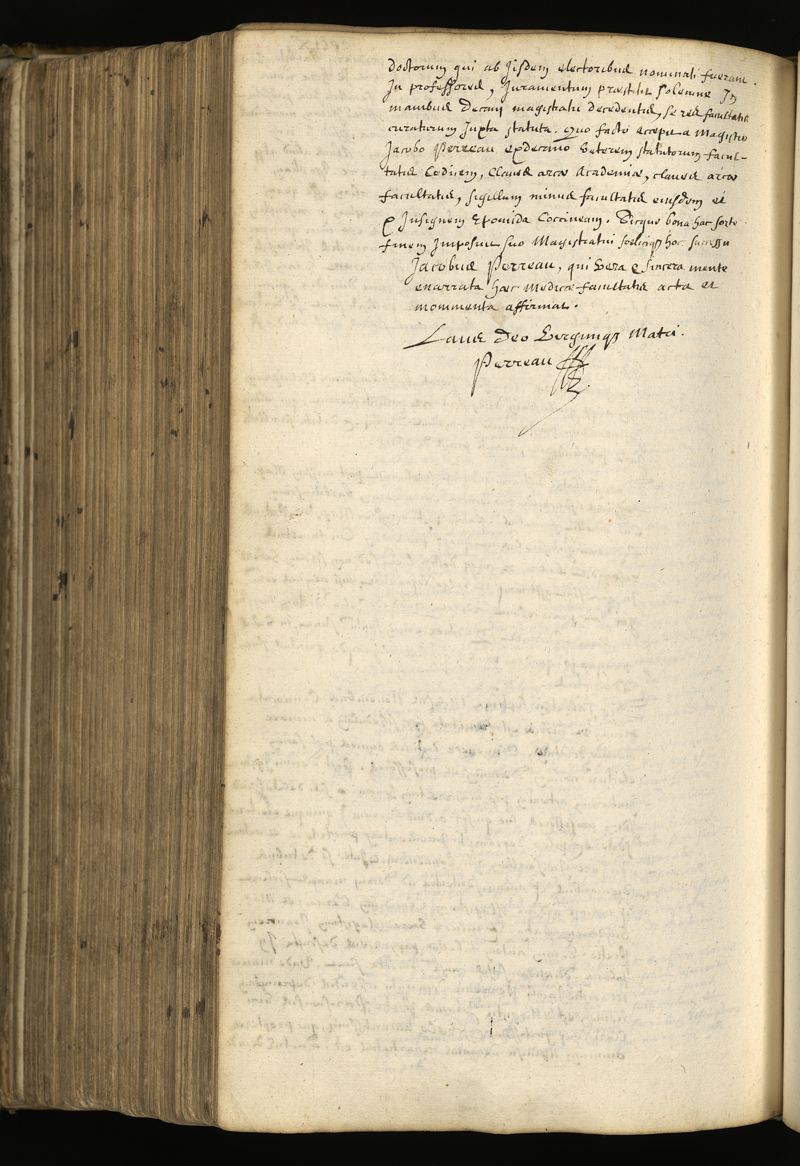 doctorum qui ab iisdem electoribus nominati fuerant
in professores, Juramentum præstitit solemne in
manibus decani magistatu decedentis, se res facultatis
curaturum juxta statuta. Quo facto accepit a Magistro
Jacobo Perreau exdecano veterem statutorum facul-
tatis codicem, claves arcæ Academiæ, claves arcæ
facultatis, sigillum minus facultatis eiusdem et
insignem Epomida Coccineam. Sicque bona hac sorte
finem imposuit suo Magistratui foelicique hoc successu
Jacobus Perreau, qui vera & sincera mente
enarrata hæc medicæ facultatis acta et
monimenta affirmat.
Laus Deo Virginiq3 Matri.
Perreau